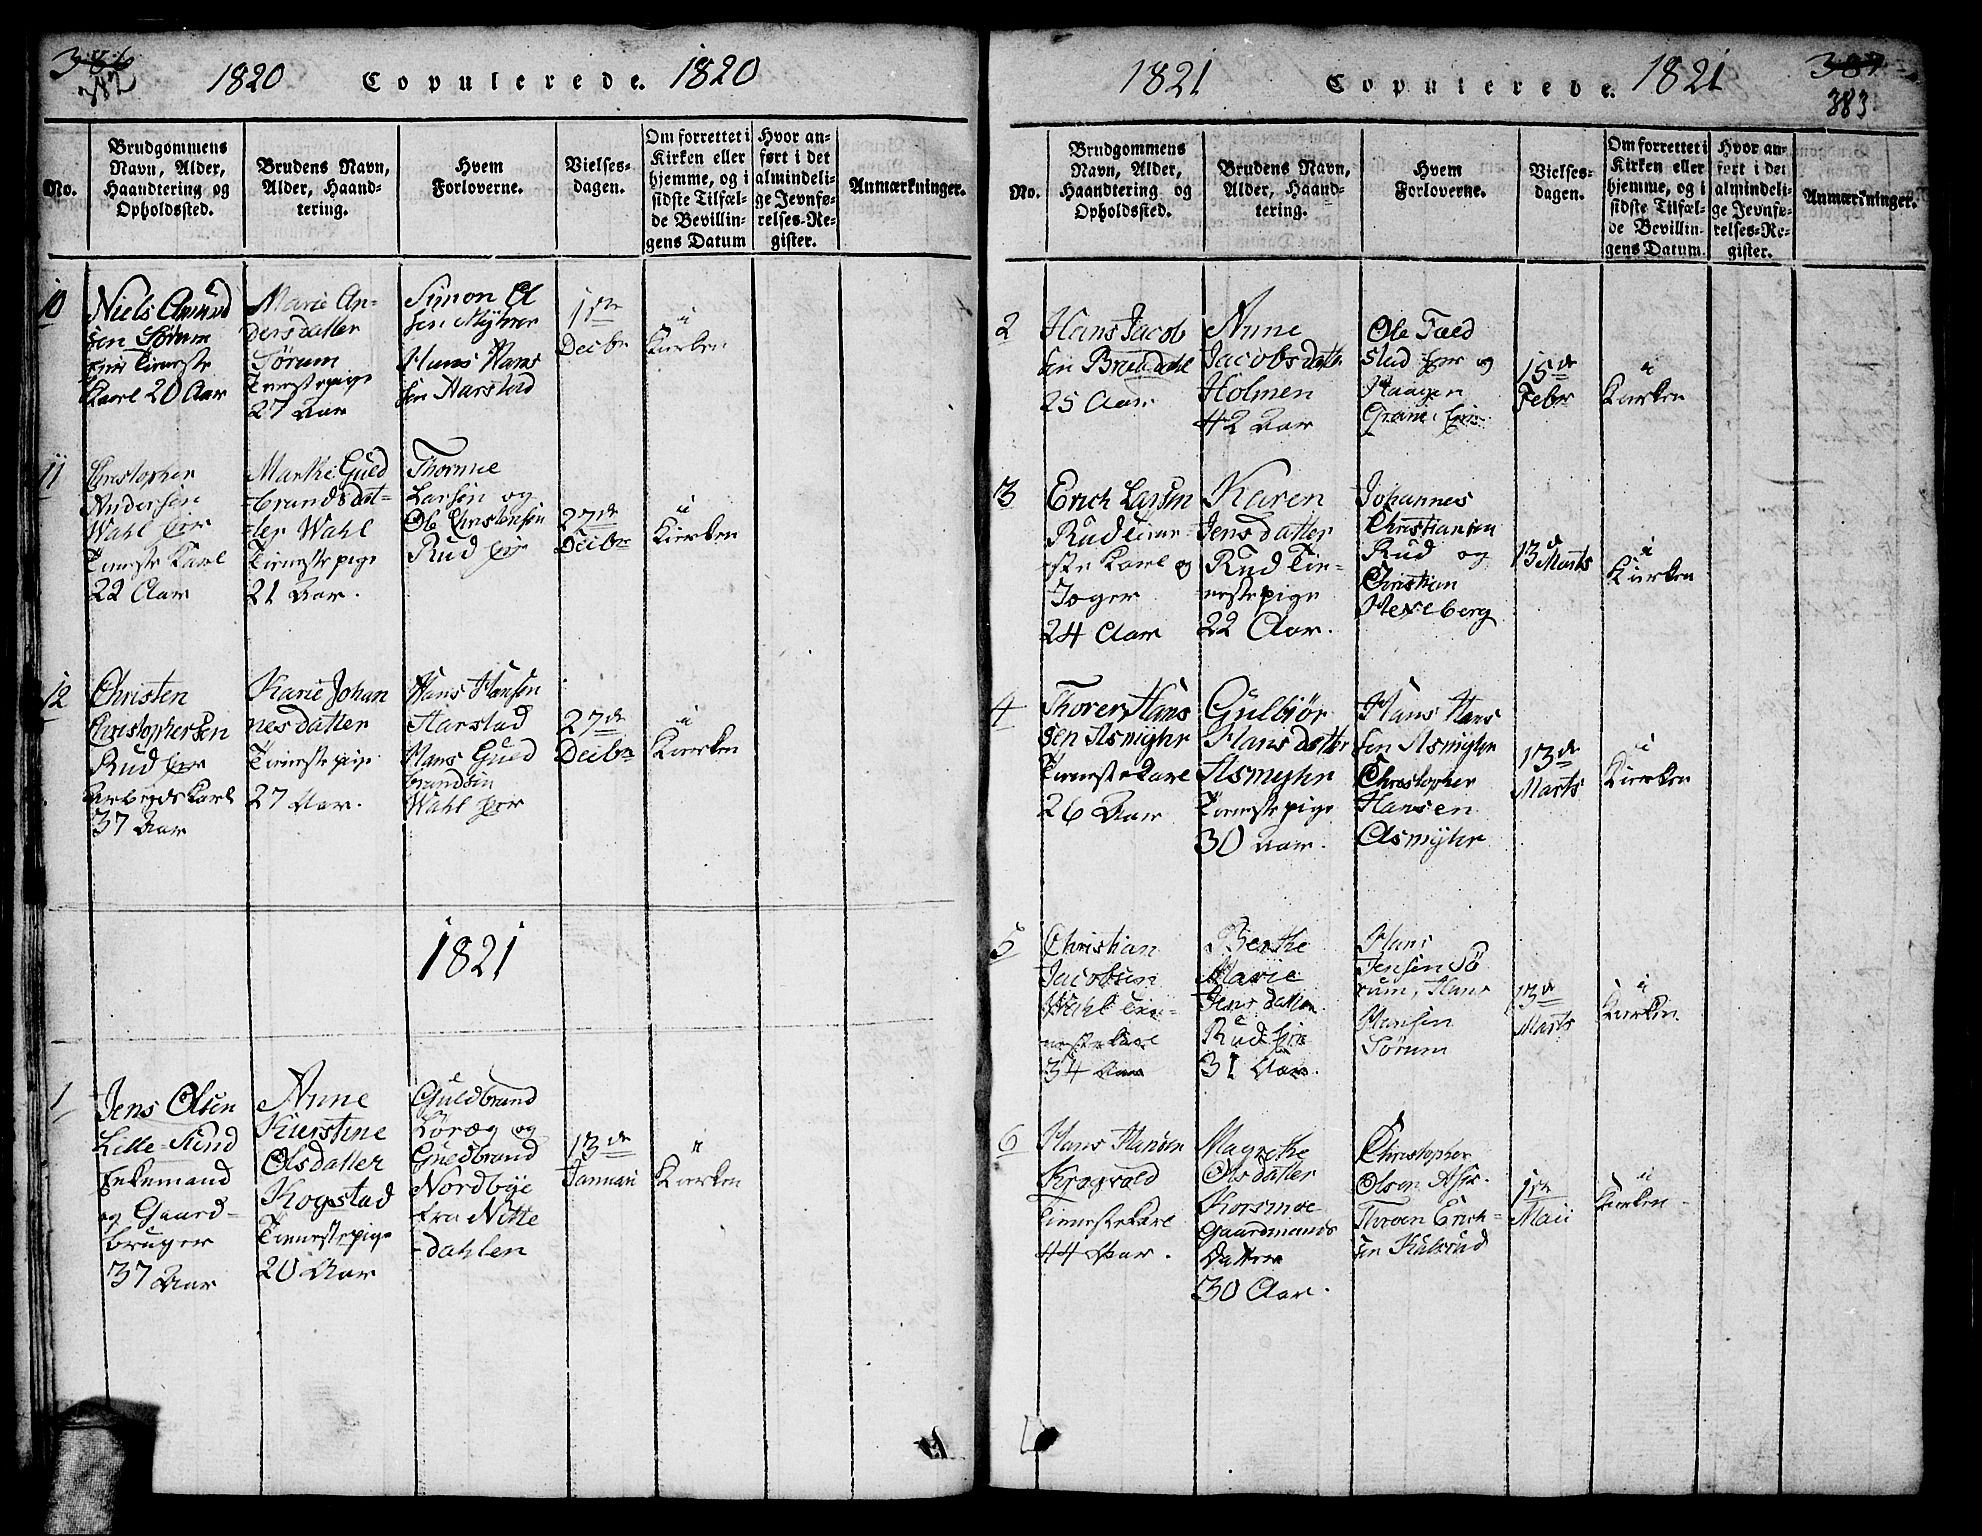 386
382
1820 Copulerede. 1820
No.
Brudgommens
Navn, Alder,
Haandtering og
Opholdssted.
Brudens Navn,
Alder, Haand-
tering.
Hvem
Forloverne.
Vielses-
dagen.
Om forrettet i
Kirken eller
hjemme, og i
sidste Tilfæl-
de Bevillin-
gens Datum
Hvor an-
ført i det
almindeli-
ge Jevnfø-
relses-Re-
gister.
Anmærkninger.
10
Niels Amund
sen Sørum
Eier Tieneste
Karl 20 Aar
Marie An-
dersdatter
Sørum
Tienestepige
27 Aar
Simon
sen Myhrer
Hans Hans
sen Harstad
1ste
Decbr
i
Kierken
11
Christopher
Andersen
Wahl Eier
Tieneste Karl
22 Aar
Marthe Guld
brandsdat-
ter Wahl
Tienestepige
21 Aar.
Thorme
Larsen og
Ole Christensen
Rud Eie
27de
Decbr
i
Kierken
12
Christen
Christophersen
Rud Eier
Arbeydskarl
37 Aar
Karie Johan
nesdatter
Tienestepige
27 Aar.
Hans Hansen
Harstad
Hans Guld
brandsen
Wahl Eier
27de
Decbr
i
Kierken
1821
1
Jens Olsen
Lille-Sund
Enkemand
og Gaard-
bruger
37 Aar
Anne
Kierstine
Olsdatter
Kogstad
Tienestepige
20 Aar
Guldbrand
Løræg og
Guldbrand
Nordbye
fra Nitte
-dahlen
13de
Januari
i
Kierken
1821 Copulerede. 1821
387
383
No.
Brudgommens
Navn, Alder,
Haandtering og
Opholdssted.
Brudens Navn,
Alder, Haand-
tering.
Hvem
Forloverne.
Vielses-
dagen.
Om forrettet i
Kirken eller
hjemme, og i
sidste Tilfæl-
de Bevillin-
gens Datum.
Hvor an-
ført i det
almindeli-
ge Jevnfø-
relses-Re-
gister.
Anmærkninger.
2
Hans Jacob
sen Breddahl
25 Aar
Anne
Jacobsdatter
Holmen
42 Aar
Ole Fæld
stad Eier og
Haagen
15de
Febr
i
Kierken
3
Erich Larsen
Rud Tiene
ste Karl og
Jæger
24 Aar
Karen
Jensdatter
Rud Tie-
nestepige
22 Aar.
Johannes
Christiansen
Rud og
Christian
Hexeberg
13de Marts
i
Kierken
4
Thorer Hans
sen Asmyhr
Tieneste Karl
26 Aar
Gulbjør
Hansdatter
Asmyhr
Tienestepige
30 Aar.
Hans Hans
sen Asmyhr
Christopher
Hansen
Asmyhr
13de
Marts
i
Kierken
5
Christian
Jacobsen
Wahl Tie-
nestekarl
34 Aar
Berthe
Marie
Jensdatter
Rud Eie
31 Aar.
Hans
Jensen Sø
rum, Hans
Hansen
Sørum
13de
Marts
i
Kierken
6
Hans Hansen
Krogvold
Tienestekarl
44 Aar.
Magrethe
Olsdatter
Korsmoe
Gaardmands
Datter
30 Aar.
Christopher
Olsen
Thoren Erich-
sen Kulsrud
1ste
Maii
i
Kierken